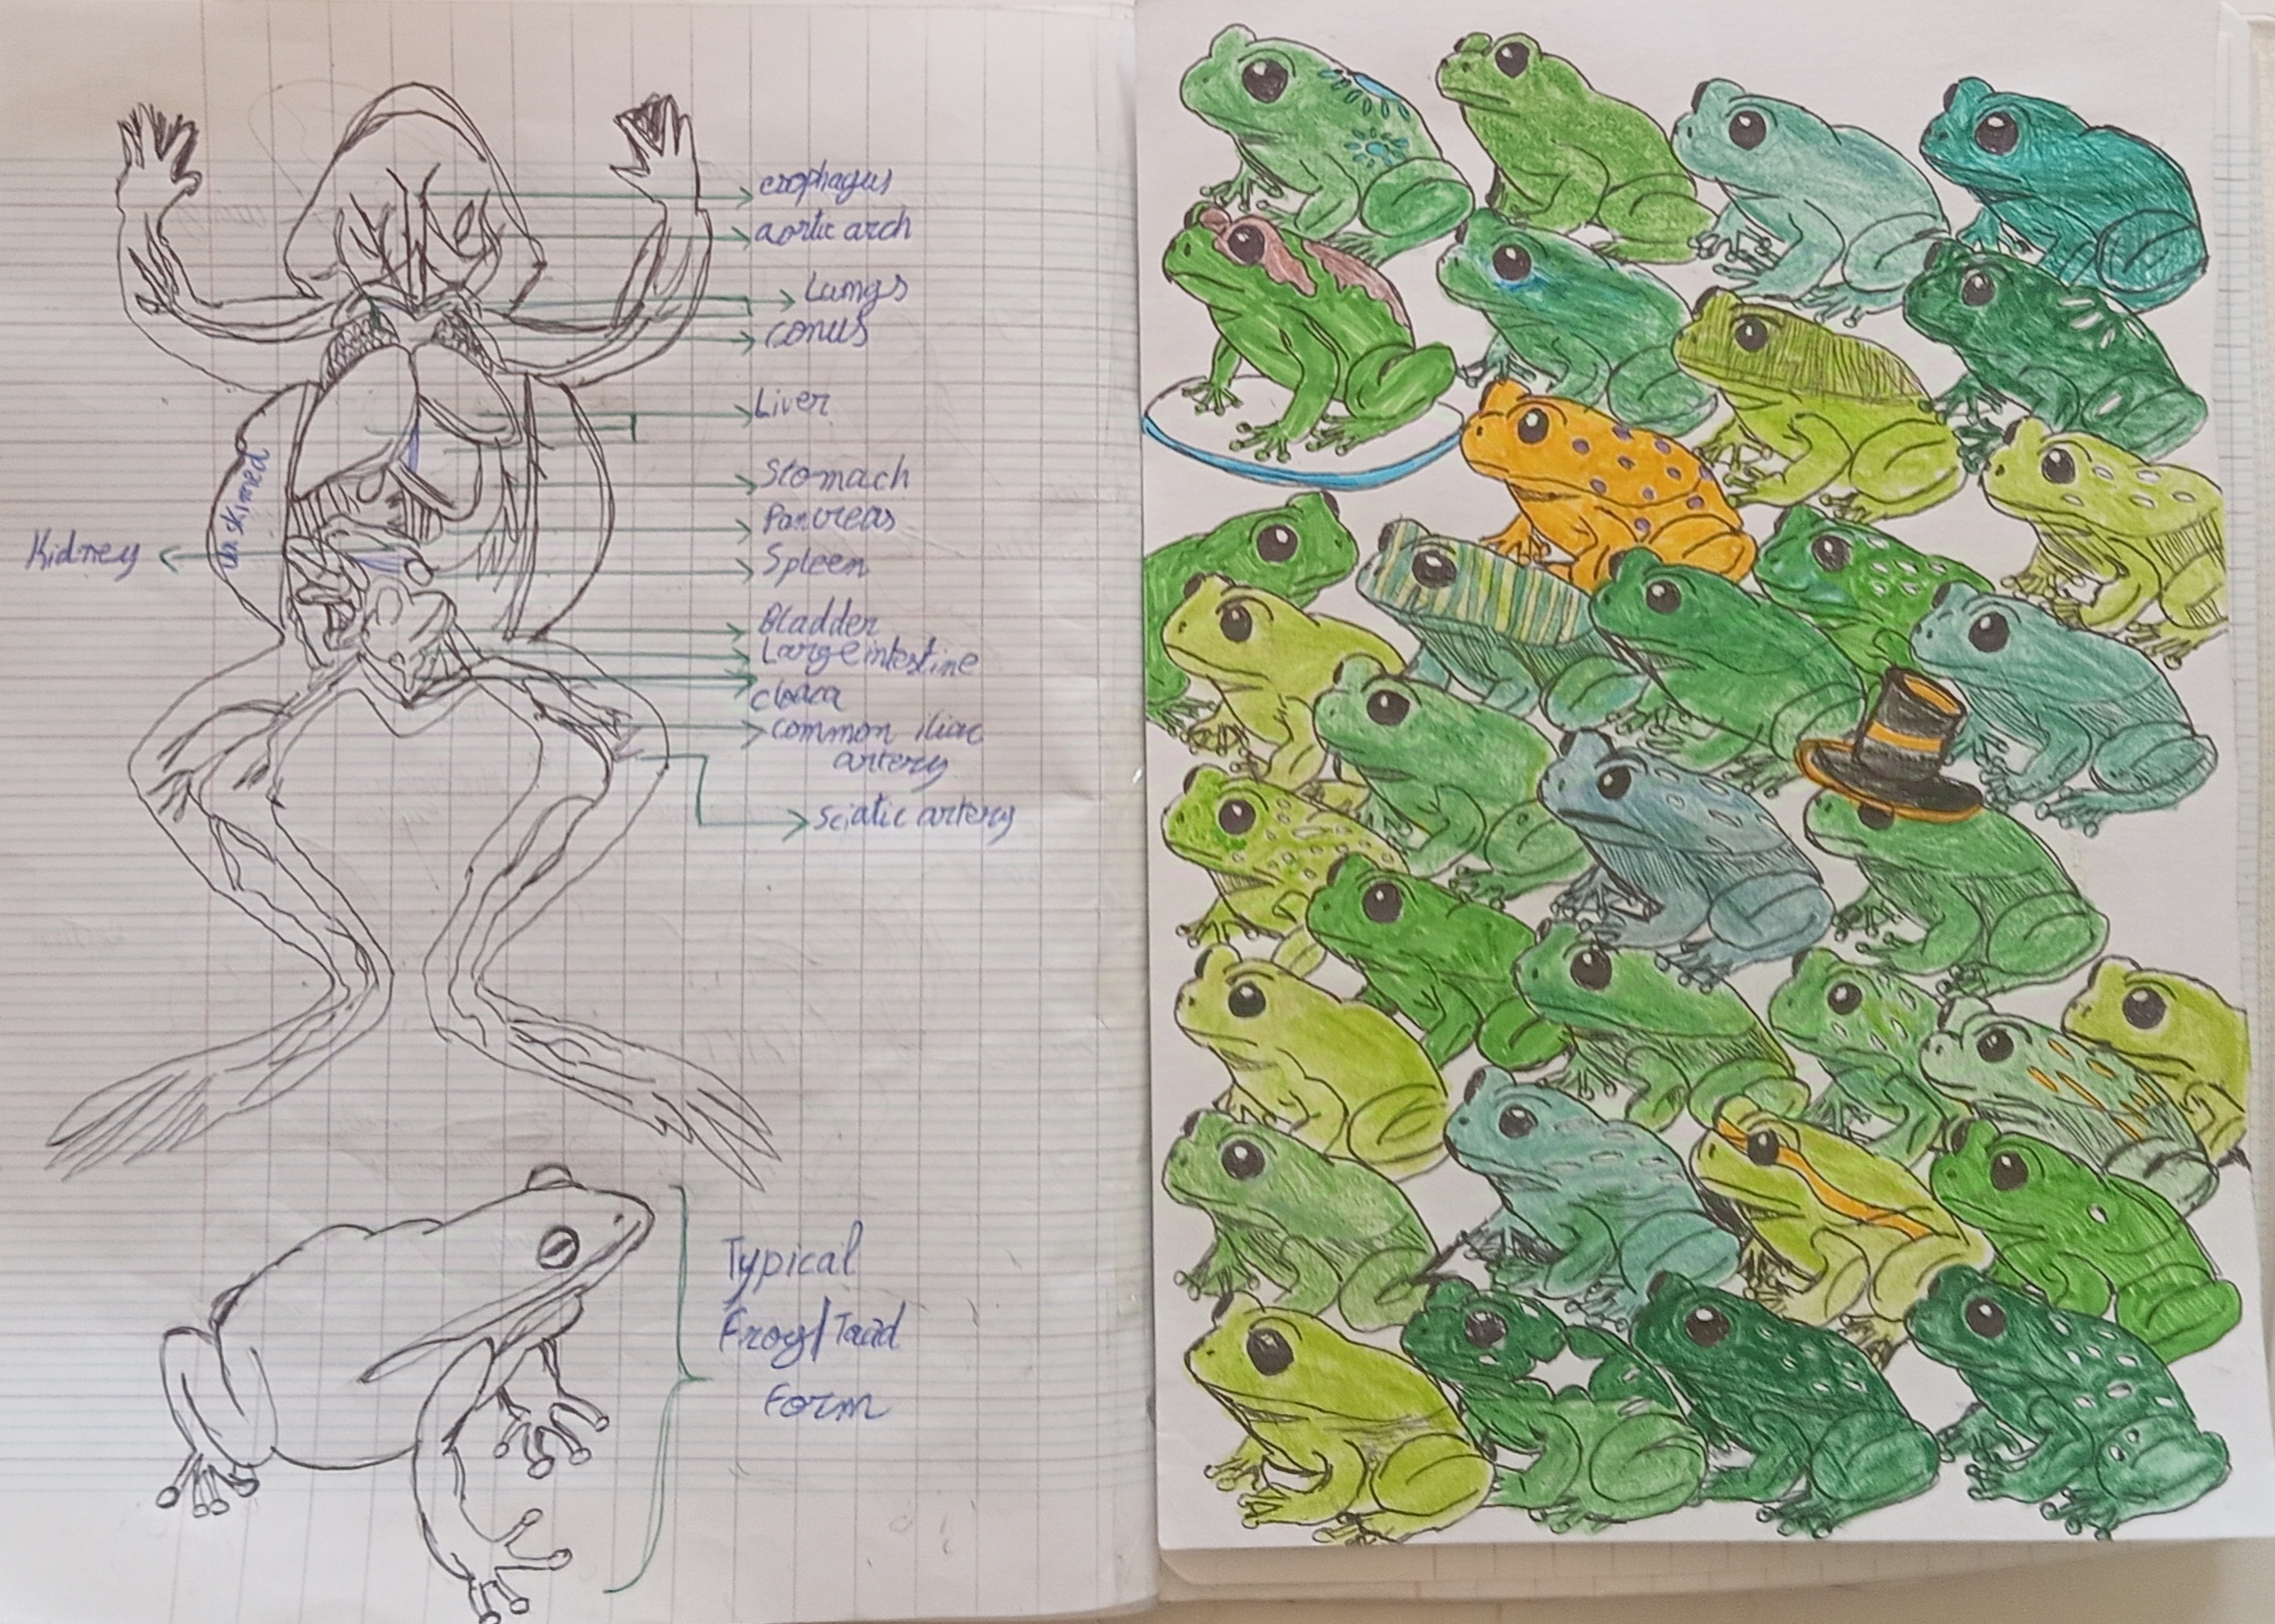 esophagus
aortic arch
Lungs
conus
Liver
Stomach
Pancreas
Kidney
un skined
Spleen
Bladder
Large intestine
cloaca
common iliac
artery
sciatic artery
Typical
Frog/Toad
Form